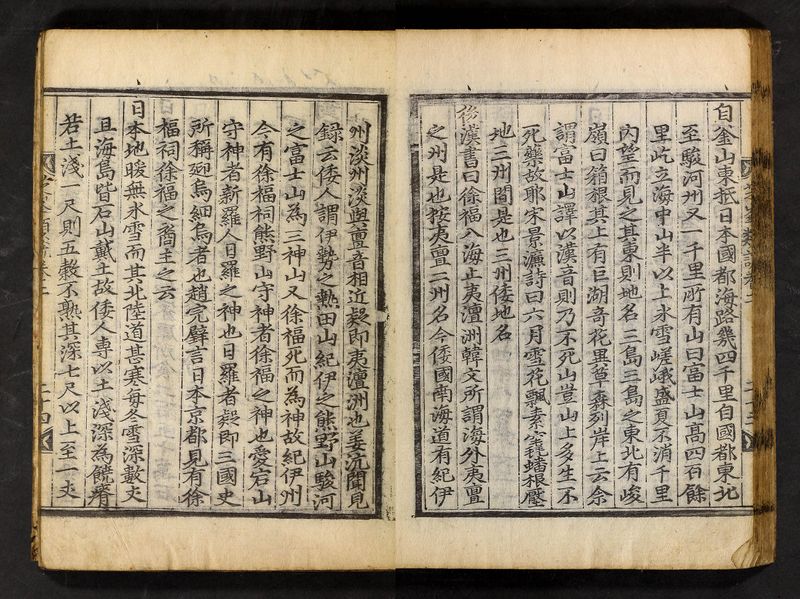 自釜山東抵日本國都海路幾四千里自國都東北
至駿河州又一千里所有山曰富士山高四百餘
里此立海中山半以上氷雪嵯峨盛夏不消千里
內望而見之其東則地名三島三島之東北有峻
嶺曰箱根其上有巨湖音花里草森列岸上云余
謂富士山譯以漢音則乃不死山豈山上多生不
死藥故耶宋景濂詩曰六月雪花飄素毳蟠根壓
地三州間是也三州倭地名
後漢書曰徐福入海止夷澶洲韓文所謂海外夷亶
之州是也按夷亶二州名今倭國南海道有紀伊
州淡州淡與亶音相近疑即夷澶洲也姜沆聞見
録云倭人謂伊勢之熱田山紀伊之熊野山駿河
之富士山為三神山又徐福死而為神故紀伊州
今有徐福祠熊野山守神者徐福之神也愛宕山
守神者新羅人日羅之神也日羅者疑即三國史
所稱迎烏細烏者也趙完璧言日本京都見有徐
福祠徐福之裔主之云
日本地暖無氷雪而其北陸道甚寒每冬雪深數丈
且海島皆石山戴土故倭人專以土淺深為饒瘠
若土淺一尺則五穀不熟其深七尺以上至一丈
二十四